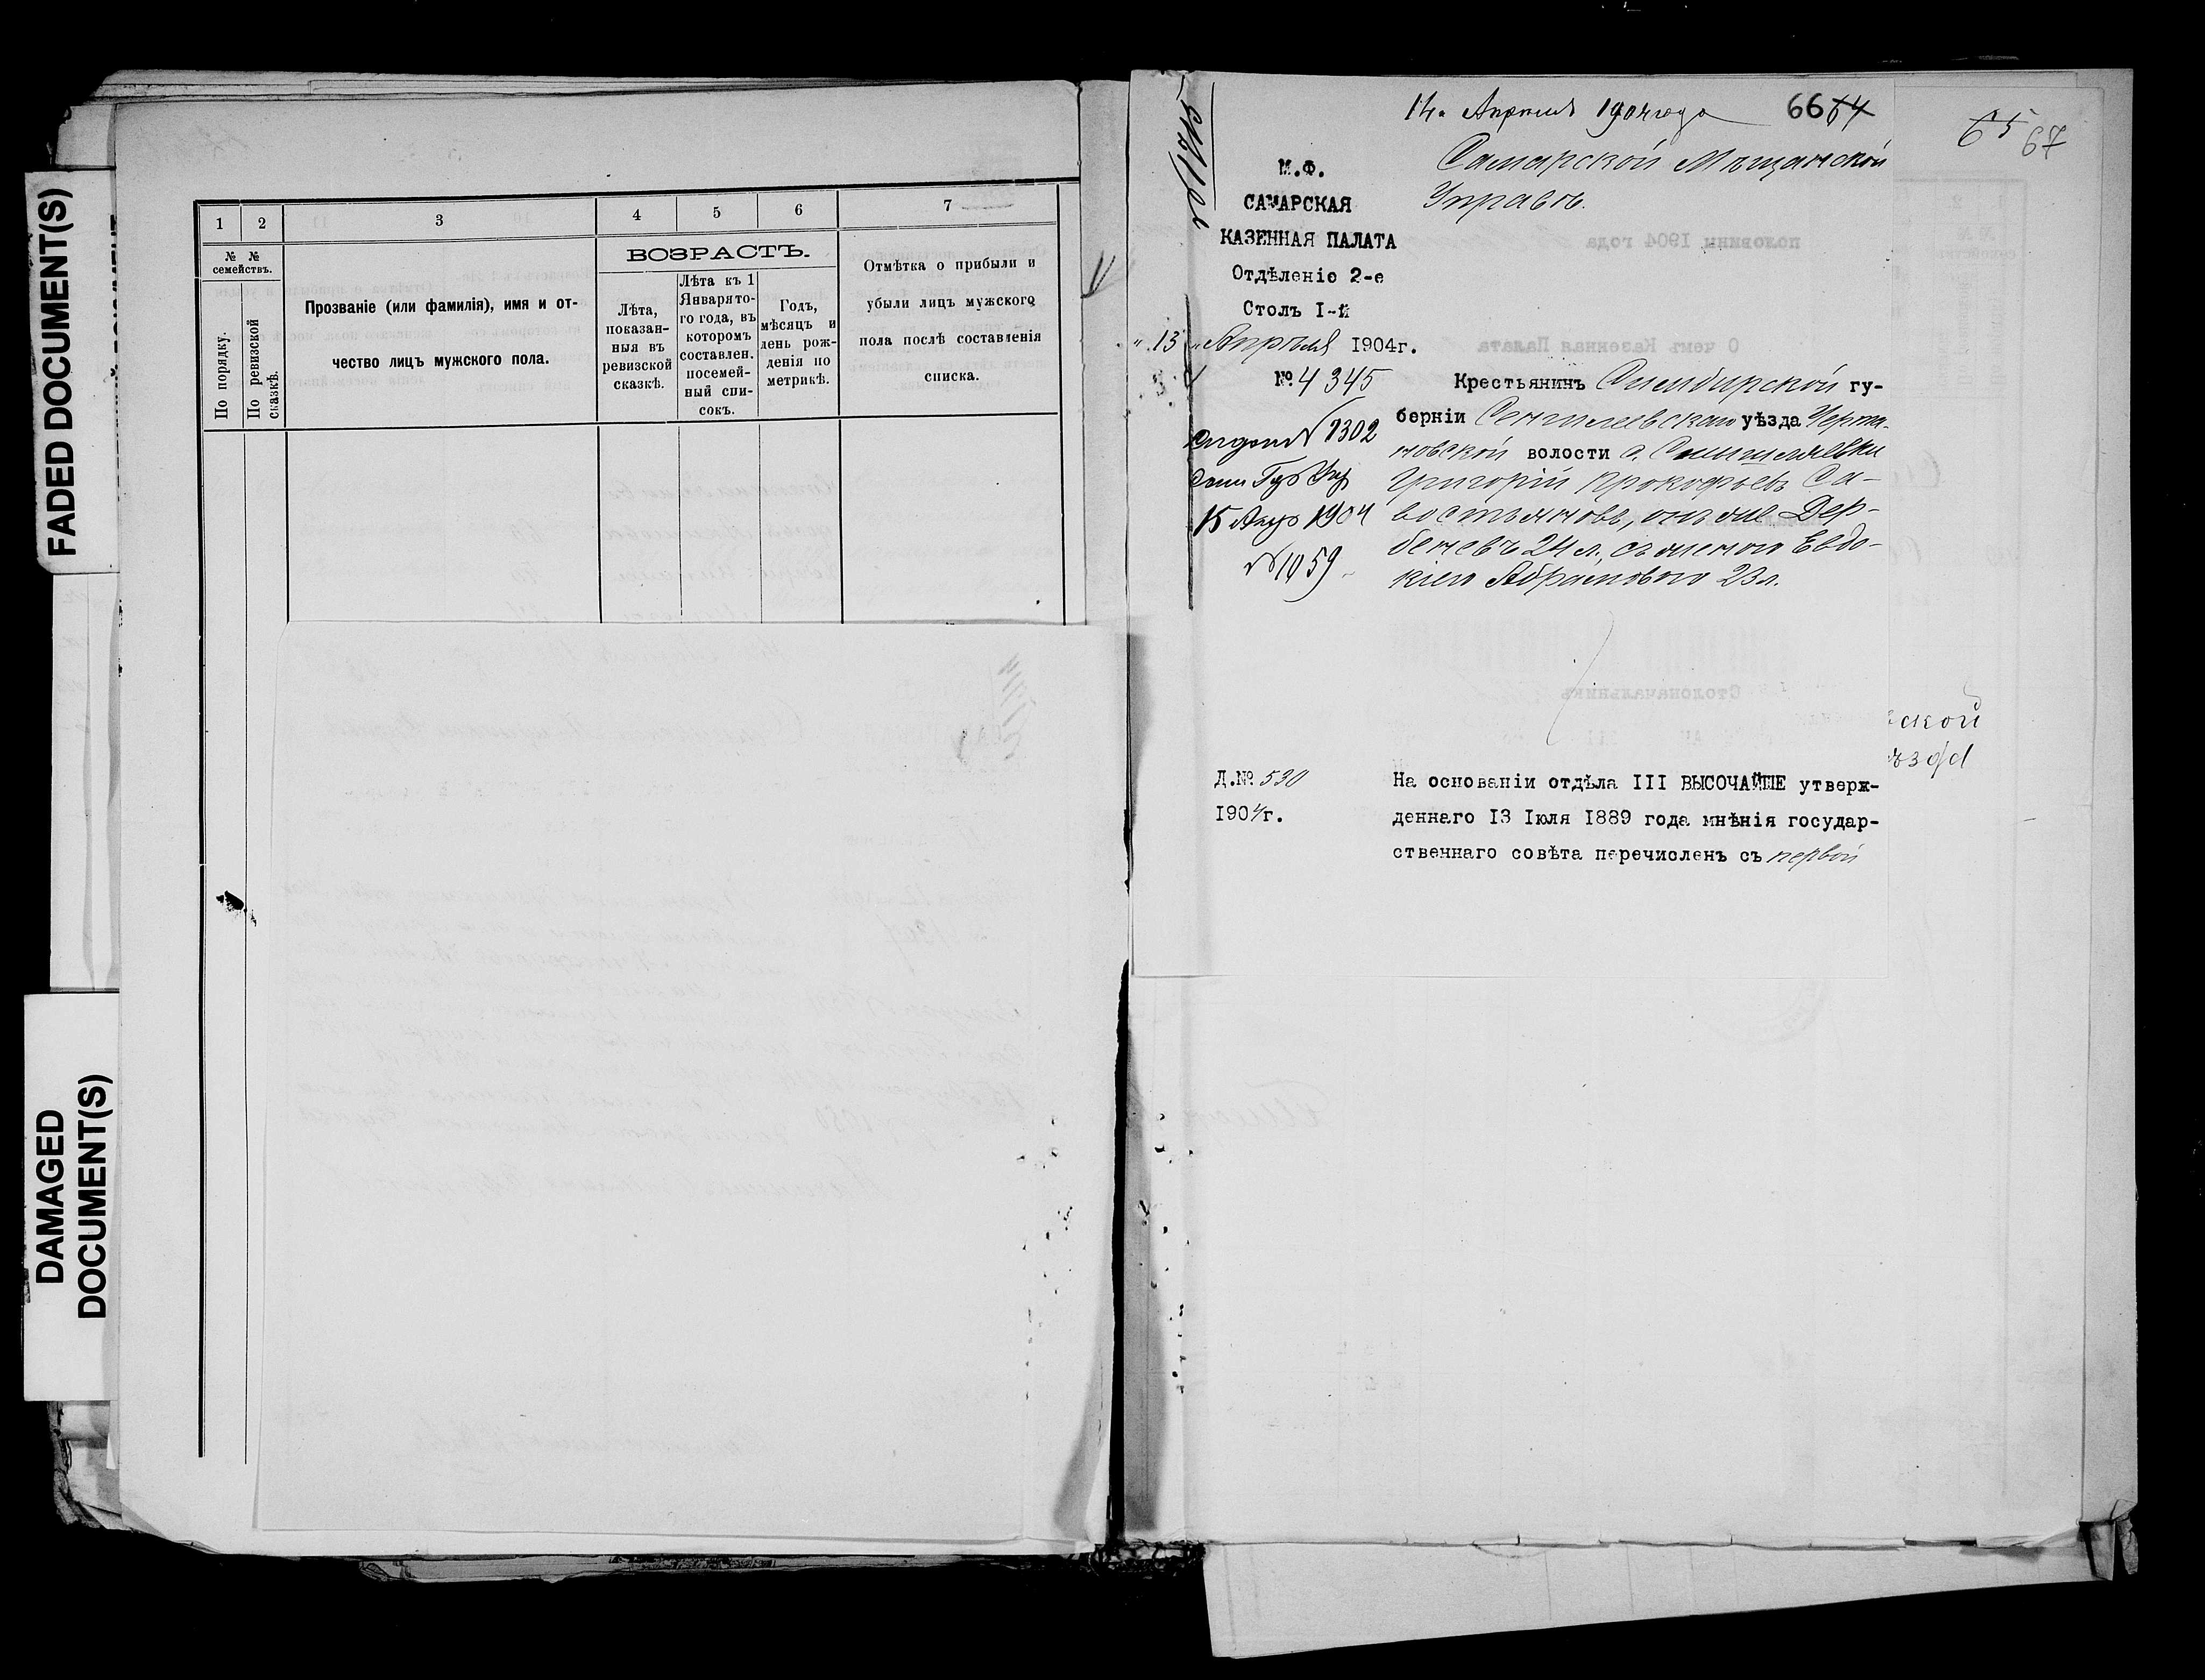 FADED DOCUMENT(S)
DAMAGED
DOCUMENT(S)
1 2 3 4 5 6 7
№ №
семействъ.
По порядку.
По ревизской
сказкѣ.
Прозваніе (или фамилія), имя и от-
чество лицъ мужского пола.
ВОЗРАСТЪ.
Лѣта,
показан-
ныя въ
ревизской
сказкѣ.
Лѣта къ 1
Января то-
го года, въ
которомъ
составлен.
посемей-
ный спи-
сокъ.
Годъ,
мѣсяцъ и
день рож-
денія по
метрикѣ.
Отмѣтка о прибыли и
убыли лицъ мужского
пола послѣ составленія
списка.
14. Апрѣля 1904 года 66 64
65 67
М.Ф.
САМАРСКАЯ
КАЗЕННАЯ ПАЛАТА
Отдѣленіе 2-е
Столъ I-й
„13„ Апрѣля 1904г.
№ 4345
Самарской Мѣщанской
Управѣ.
№ 1302
15 1904
№ 1059
Крестьянинъ Симбирской гу-
берніи Сенгилеевскаго уѣзда
новской волости с.
Григорій Прокофьевъ Са-
востьяновъ, онъ же Дер-
беневъ 24 л. съ женою Евдо-
кіею Абрамовою 23 л.
ской
Д.№ 530
1904г.
На основаніи отдѣла III ВЫСОЧАЙШЕ утверж-
деннаго 13 Іюля 1889 года мнѣнія государ-
ственнаго совѣта перечисленъ съ первой